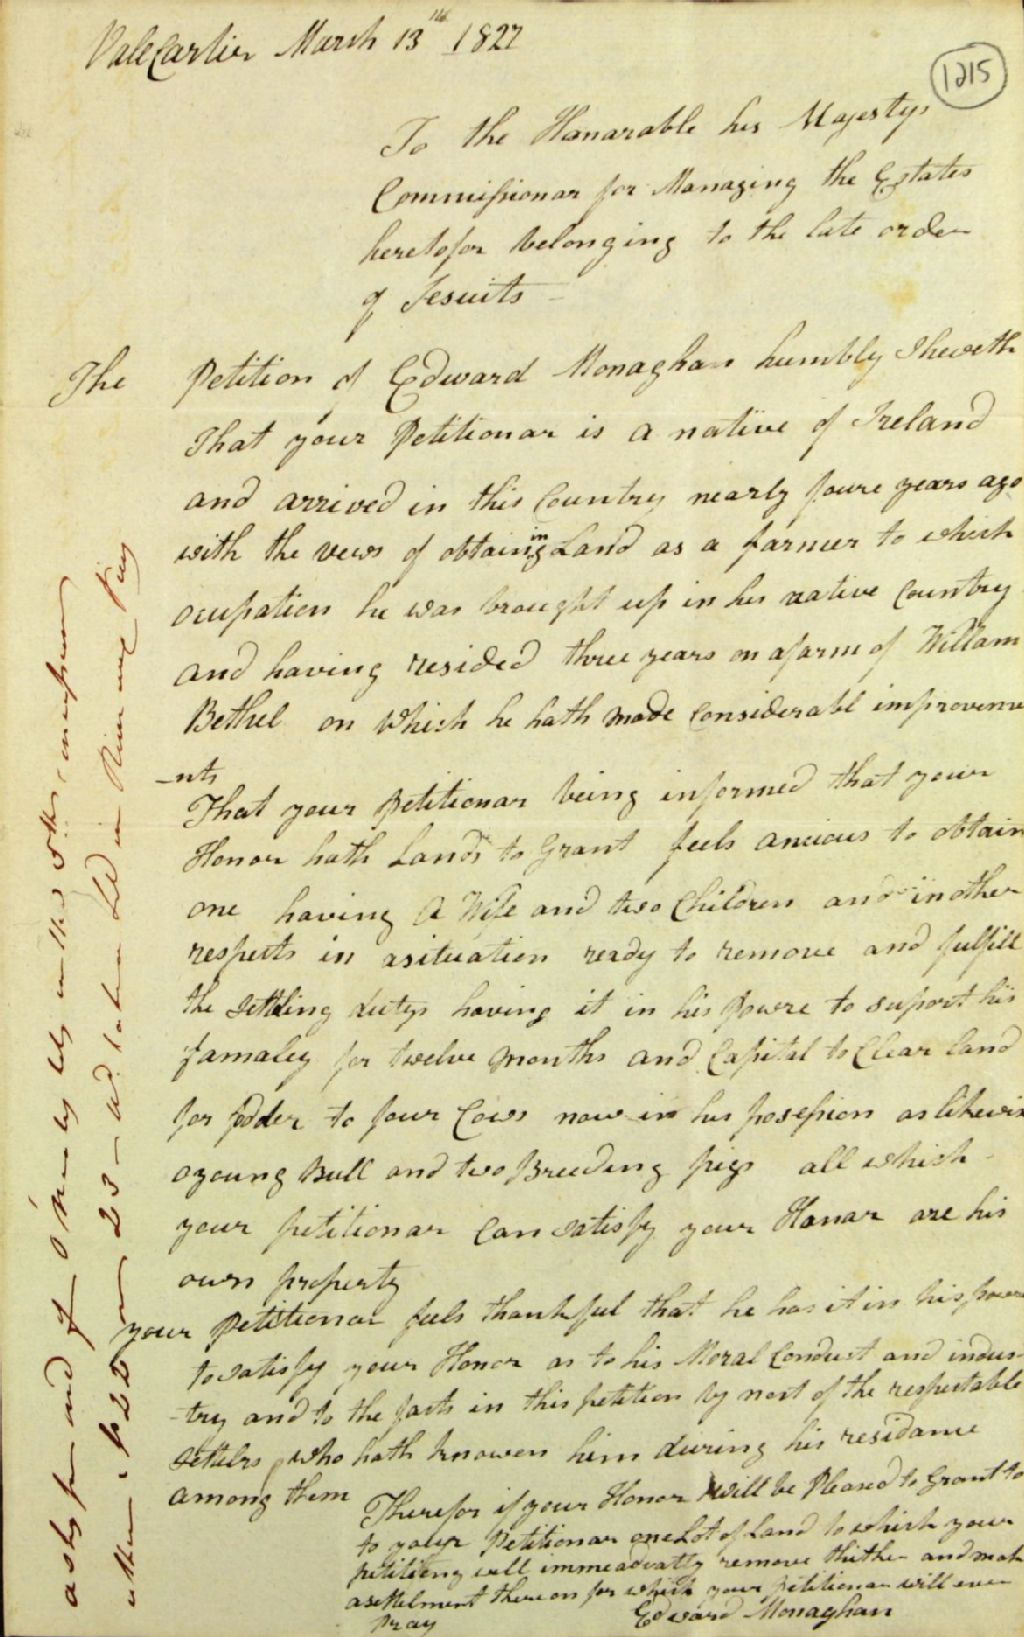 ValeCartier March 13th 1827
1215
To the Hanarable his Majestys
Commissionar for Managing the Estates
heretofor belonging to the late order
of Jesuits —
The Petition of Edward Monaghan humbly Sheweth
That your Petitionar is a native of Ireland
and arrived in this Country nearly foure years ago
with the vews of obtaining Land as a farmer to which
ocupation he was brought up in his native Country
and having resided three years on a farm of Willam
Bethel on which he hath made Considerabl improveme
-nts
That your petitionar being informed that your
Honor hath Lands to Grant feels ancious to obtain
one having A Wife and two Children and in other
respects in a situation ready to remove and fulfill
the Settling dutys having it in his powre to suport his
famaley for twelve months and Capital to Clear land
for fodder to four Cows now in his posession as likewis
a young Bull and two Breeding pigs all which
your petitionar Can satisfy your Hanar are his
own property
your Petitionar feels thankful that he has it in his powre
to satisfy your Honor as to his Moral Conduct and indus
-try and to the facts in this petition by most of the respectable
settelrs who hath knowen him during his residance
among them
Therefor if your Honor will be Pleased to Grant to
to your Petitionar one Lot of Land to which your
petitiong will immeadeatly remove thither and make
a settelment thereon for which your petitionar will ever
pray
Edward Monaghan
asks for land
23 — and